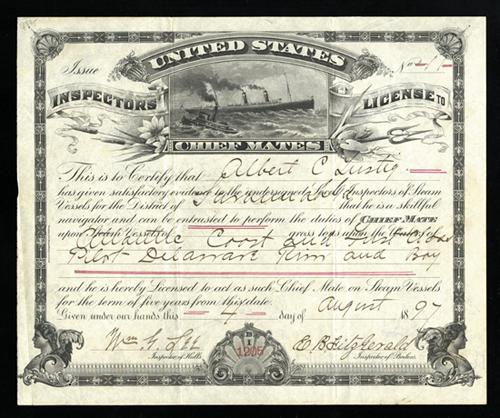 UNITED STATES
Issue No
INSPECTORS LICENSE TO
CHIEF MATES
This is to Certify that Albert C Lustig
has given satisfactory evidence to the undersigned Local Inspectors of Steam
Vessels for the District of Savannah Ga that he is a skillful
navigator and can be entrusted to perform the duties of CHIEF MATE
upon Steam Vessels of gross tons upon the
Atlantic Coast and
Pilot Delaware River and Bay
and he is hereby Licensed to act as such Chief Mate on Steam Vessels
for the term of five years from this date.
Given under our hands this 4 day of August 1897
1205
Wm. E. B. Fitzgerald
Inspector of Hulls Inspector of Boilers